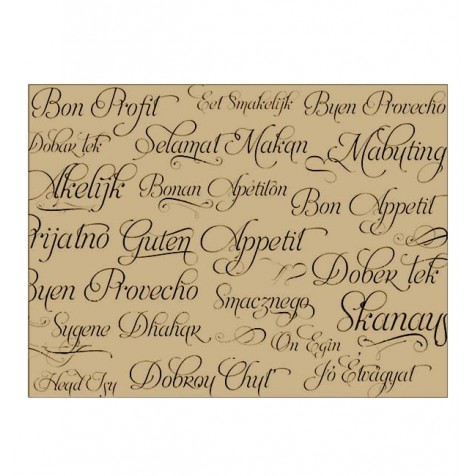 Bon Profit Eet Smakelijk Buen Provecho
Dobar tek Selamat Makan Mabuting
Akelijk Bonan Apetiton Bon Appetit
rijatno Guten Appetit Dober tek
Buen Provecho Smacznego Skanaus
Sygene Dhahar On Egin
Dobrou Chuť Jó Étvágyat